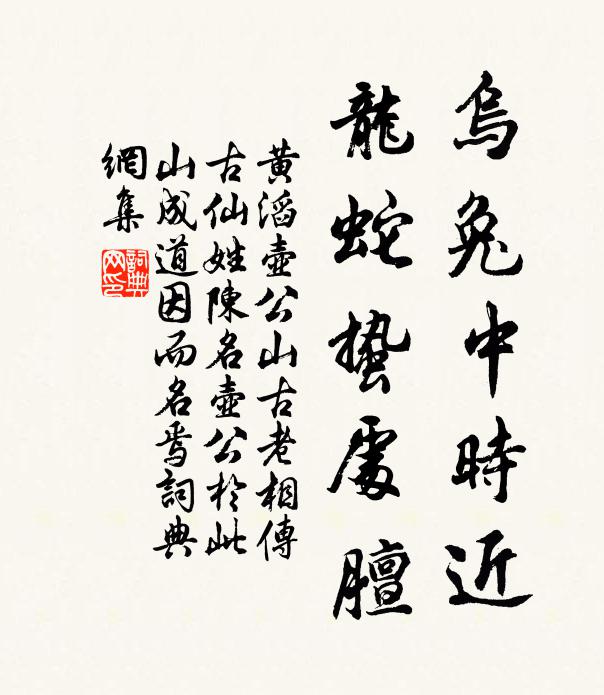 烏兔中時近
龍蛇蟄處膻
黄滔壺公山古老相傳
古仙姓陳名壺公於此
山成道因而名焉詞典
網集
詞典網印